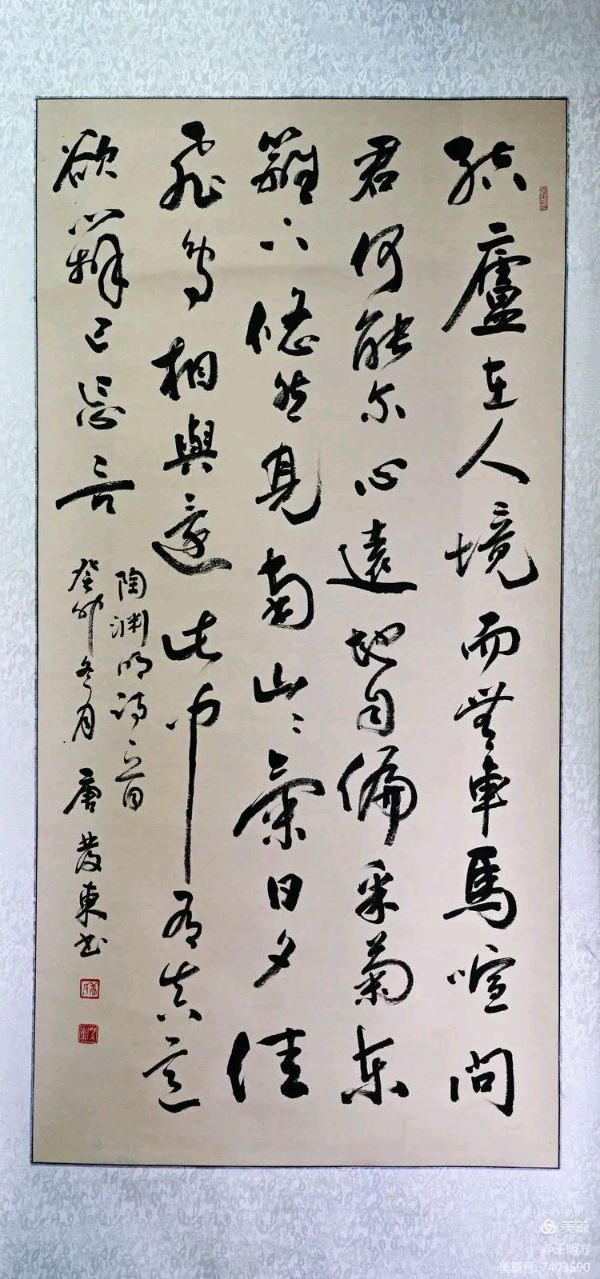 結廬在人境而無車馬喧問
君何能尔心遠地自偏采菊东
籬下悠然見南山〻氣日夕佳
飛鳥相與還此中有真意
欲辨已忘言
陶渊明诗一首
癸卯冬月 唐發東书
美篇
@王明方
美篇号: 7403590